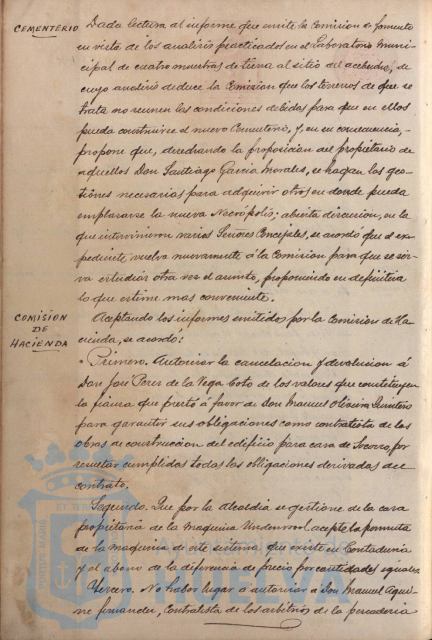 CEMENTERIO
Dada lectura al informe que emite la Comision de fomento
en vista de los analisis practicados en el Laboratorio Muni-
cipal de cuatro muestras de tierra al sitio del acebuche, de
cuyo analisis deduce la Comision que los terrenos de que se
trata no reunen las condiciones debidas para que en ellos
pueda construirse el nuevo Cementerio, y, en su consecuencia,
propone que, desechando la proposicion del propietario de
aquellos Don Santiago Garcia Morales, se hagan las ges-
tiones necesarias para adquirir otros en donde pueda
emplazarse la nueva Necrópolis; abierta discucion, en la
que intervinieron varios Señores Concejales, se acordó que el ex-
pediente vuelva nuevamente á la Comision para que se sir-
va estudiar otra vez el asunto, proponiendo en definitiva
lo que estime mas conveniente.
COMISION
DE
HACIENDA
Aceptando los informes emitidos por la Comision de Ha-
cienda, se acordó:
Primero. Autorizar la cancelacion y devolucion á
Don José Perez de la Vega Coto de los valores que constituyen
la fianza que prestó á favor de Don Manuel Oliveira Quintero
para garantir sus obligaciones como contratista de las
obras de construccion del edificio para casa de Socorro, por
resultar cumplidas todas las obligaciones derivadas del
contrato.
Segundo. Que por la Alcaldia se gestione de la casa
propietaria de la maquina Underwood acepte la permuta
de la maquina de este sistema que existe en Contaduria
y el abono de la diferencia de precio por cantidades iguales.
Tercero. No haber lugar a autorizar a Don Manuel
Fernandez, Contratista de los arbitrios de la pescaderia
Ayuntamiento de
HUELVA